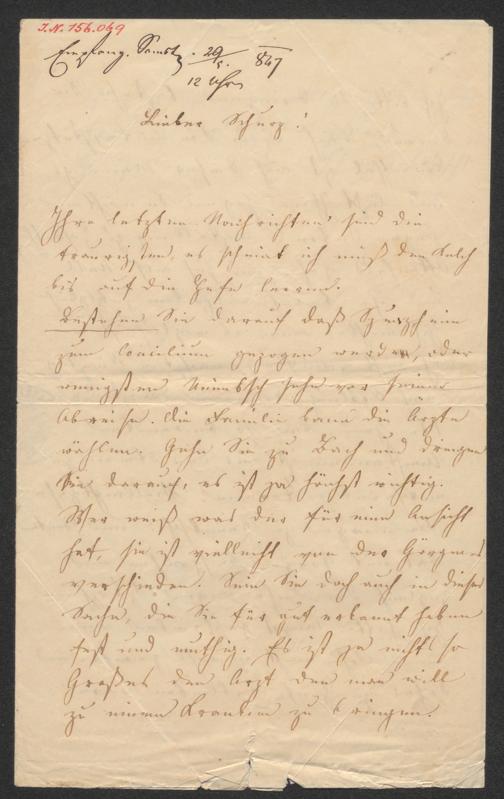 I.N. 156.069
Empfang. Samst. 29/5. 847
12 Uhr
Lieber Schurz!
Ihre letzten Nachrichten sind die
traurigsten, es scheint ich muß den Kelch
bis auf die Hefe leeren.
Bestehen Sie darauf daß Spurzheim
zum Concilium gezogen werde, oder
wenigsten sehe vor seiner
Abreise. Die Familie kann die Ärzte
wählen. Gehn Sie zu Bach und dringen
Sie darauf, es ist ja höchst wichtig.
Wer weiß was der für eine Ansicht
hat, sie ist vielleicht von der Görgens
verschieden. Sein Sie doch auch in dieser
Sache, die Sie für gut erkannt haben
fest und muthig. Es ist ja nichts so
Großes den Arzt den man will
zu einem Kranken zu bringen.